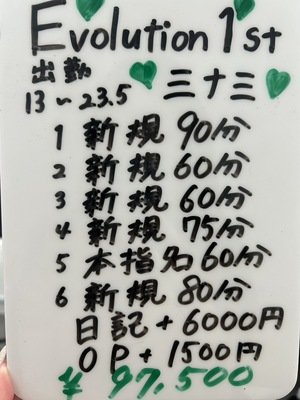 Evolution 1st
出勤
13～23.5 三十三
1 新規 90分
2 新規 60分
3 新規 60分
4 新規 75分
5 本指名 60分
6 新規 80分
日記+6000円
OP+1500円
¥97,500